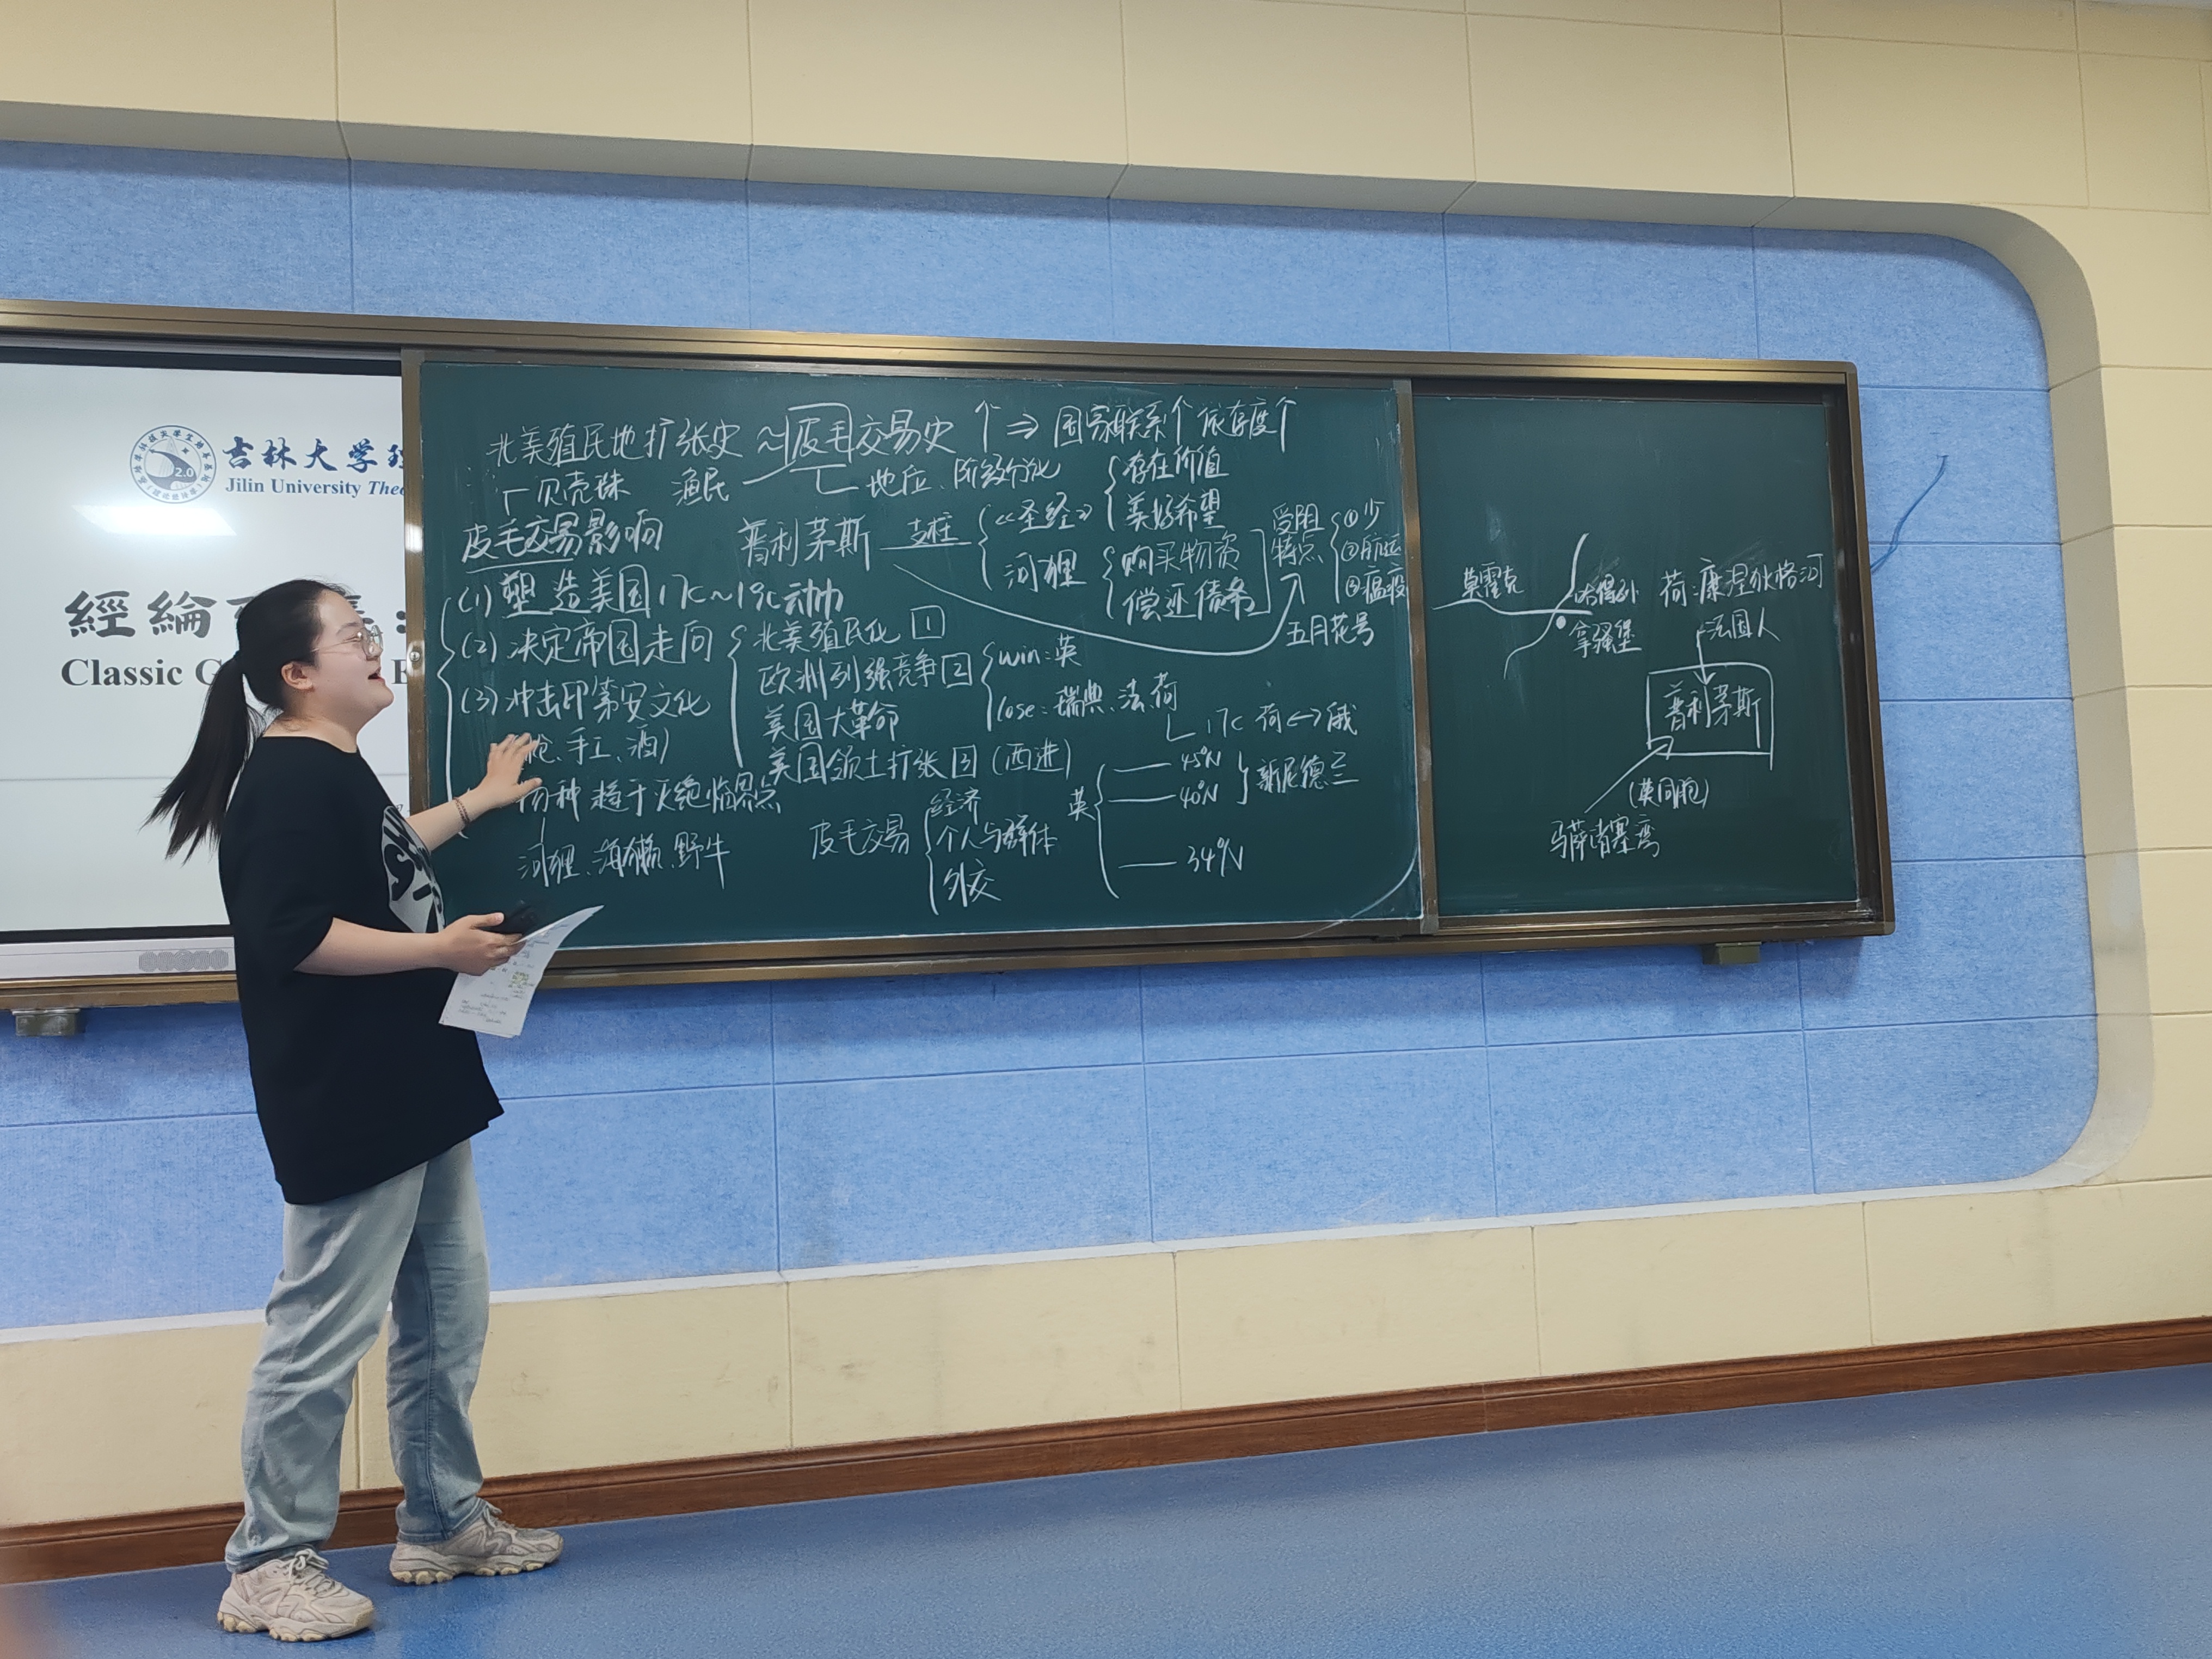 吉林大学
Jilin University Theo
2.0
經綸
Classic
北美殖民地扩张史~皮毛交易史↑⇒国家联系↑依存度↑
贝壳珠 渔民 地位、阶级分化
皮毛交易影响
(1)塑造美国17c~19c
(2)决定帝国走向
(3)冲击印第安文化
枪、手工、酒)
物种趋于灭绝临界点
河狸、海獭、野牛
北美殖民化 1
欧洲列强竞争 2
美国大革命
美国领土扩张 3 (西进)
win:英
lose:瑞典、法、荷
17c 荷↔俄
普利茅斯 支柱
《圣经》
存在价值
美好希望
河狸
购买物资
偿还债务
受阻
特点
①少
②航运
③瘟疫
五月花号
皮毛交易
经济
个人与群体
外交
英
45°N
40°N
34°N
新尼德兰
莫霍克
哈得孙
拿骚堡
荷:康涅狄格河
法国人
普利茅斯
(英同胞)
马萨诸塞湾